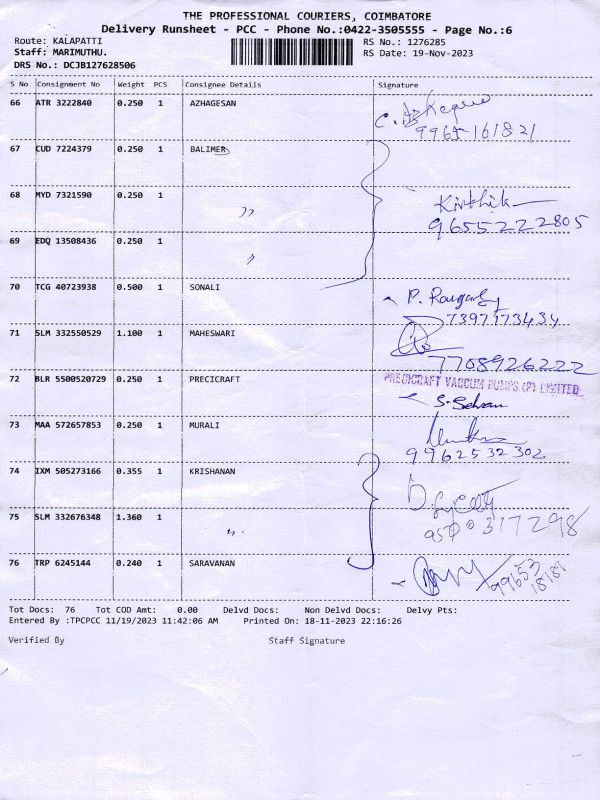 THE PROFESSIONAL COURIERS, COIMBATORE
Delivery Runsheet - PCC - Phone No.:0422-3505555 - Page No.:6
Route: KALAPATTI
Staff: MARIMUTHU.
DRS No.: DCJB127628506
RS No.: 1276285
RS Date: 19-Nov-2023
S No Consignment No Weight PCS Consignee Details Signature
66 ATR 3222840 0.250 1 AZHAGESAN
67 CUD 7224379 0.250 1 BALIMER
68 MYD 7321590 0.250 1 〃
Kirthika
9655222805
69 EDQ 13508436 0.250 1 〃
70 TCG 40723938 0.500 1 SONALI
7397173434
71 SLM 332550529 1.100 1 MAHESWARI
7708926222
72 BLR 5500520729 0.250 1 PRECICRAFT
PRECICRAFT VACCUM PUMPS (P) LIMITED
S. Selvan
73 MAA 572657853 0.250 1 MURALI
9962532302
74 IXM 505273166 0.355 1 KRISHANAN
75 SLM 332676348 1.360 1 〃
76 TRP 6245144 0.240 1 SARAVANAN
Tot Docs: 76 Tot COD Amt: 0.00 Delvd Docs: Non Delvd Docs: Delvy Pts:
Entered By :TPCPCC 11/19/2023 11:42:06 AM Printed On: 18-11-2023 22:16:26
Verified By Staff Signature